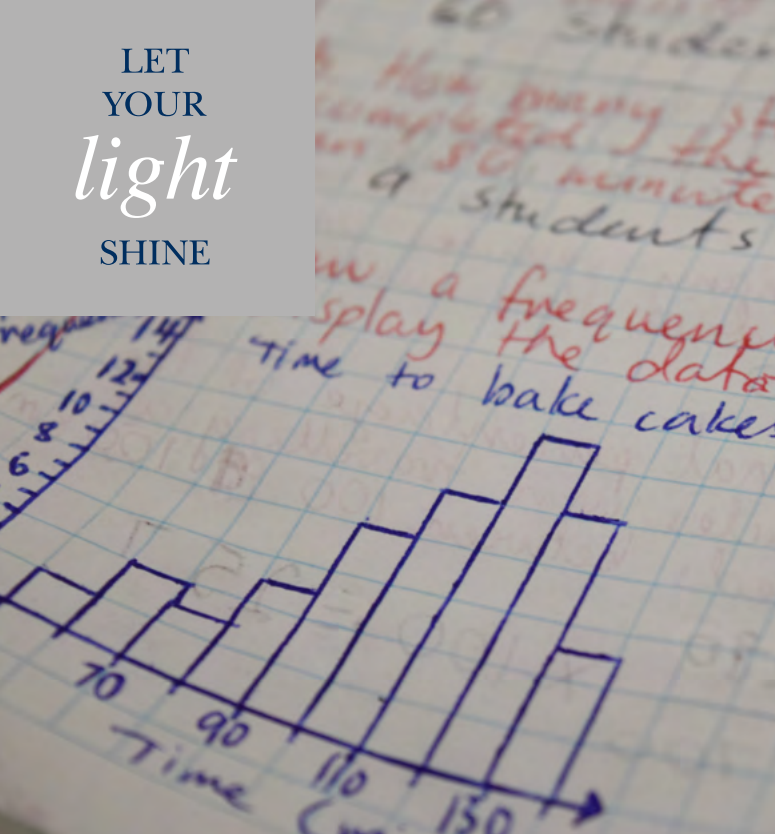 LET
YOUR
light
SHINE
60 Studen
How many st
completed the
an 80 minute
9 students
aw a frequenc
splay the data
Time to bake cakes
requen
14
12
10
8
6
70
90
110
130
Time (m